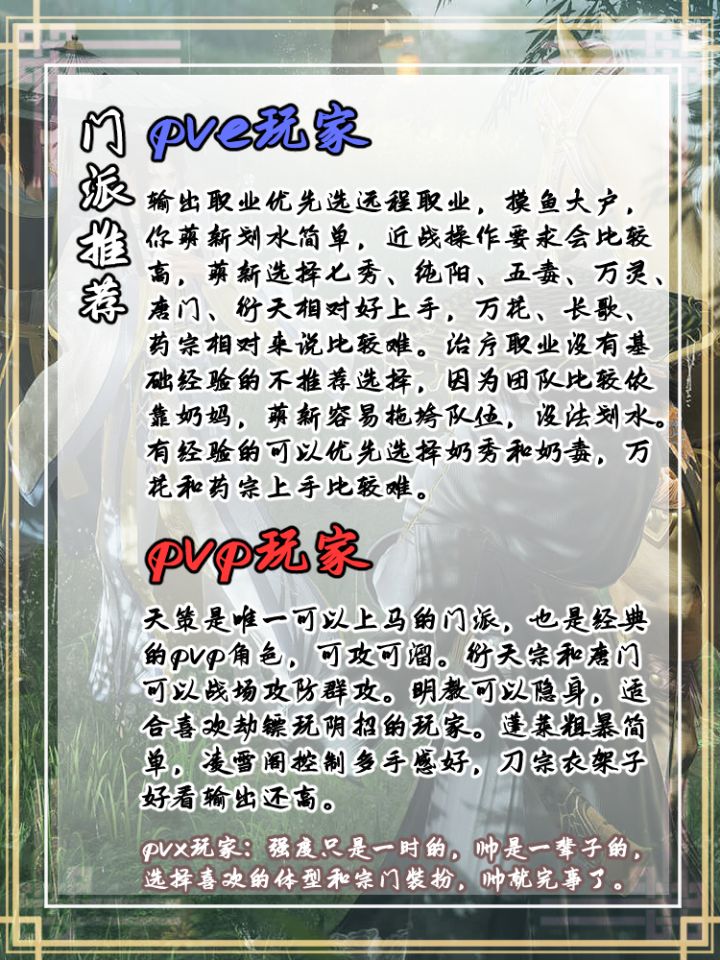 门派推荐
pve玩家
输出职业优先选远程职业，摸鱼大户，
你萌新划水简单，近战操作要求会比较
高，萌新选择七秀、纯阳、五毒、万灵、
唐门、衍天相对好上手，万花、长歌、
药宗相对来说比较难。治疗职业没有基
础经验的不推荐选择，因为团队比较依
靠奶妈，萌新容易拖垮队伍，没法划水。
有经验的可以优先选择奶秀和奶毒，万
花和药宗上手比较难。
pvp玩家
天策是唯一可以上马的门派，也是经典
的pvp角色，可攻可溜。衍天宗和唐门
可以战场攻防群攻。明教可以隐身，适
合喜欢劫镖玩阴招的玩家。蓬莱粗暴简
单，凌雪阁控制多手感好，刀宗衣架子
好看输出还高。
pvx玩家：强度只是一时的，帅是一辈子的，
选择喜欢的体型和宗门装扮，帅就完事了。